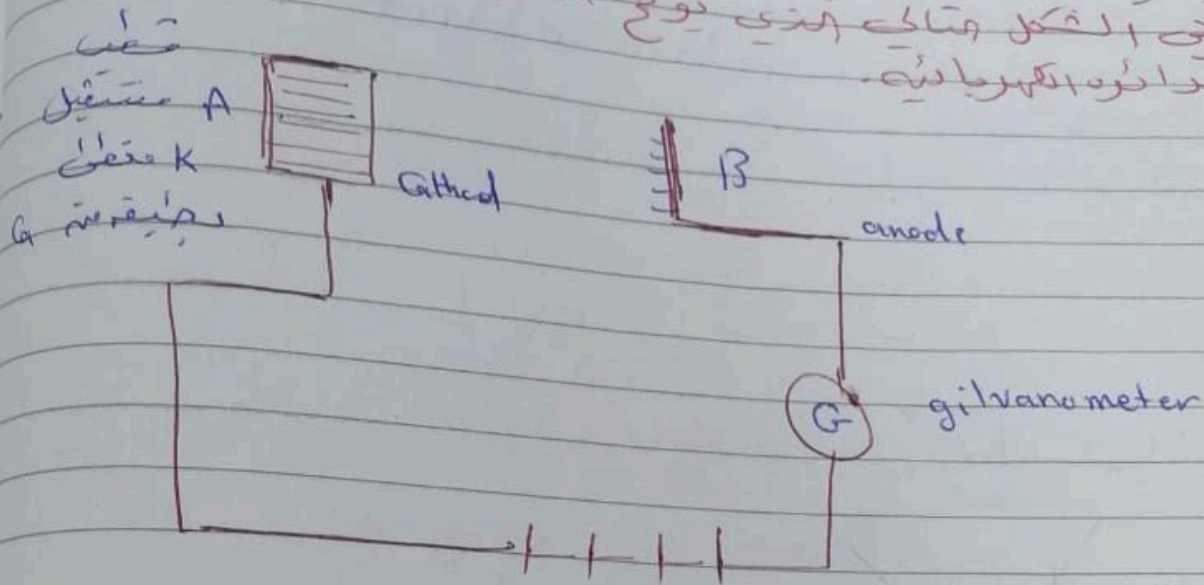 في الشكل التالي الذي يوضح
دائره الكهربائيه.
قطب
مستقبل A
K مغطى
G بطبقه من
Cathod
B
anode
G
gilvanometer